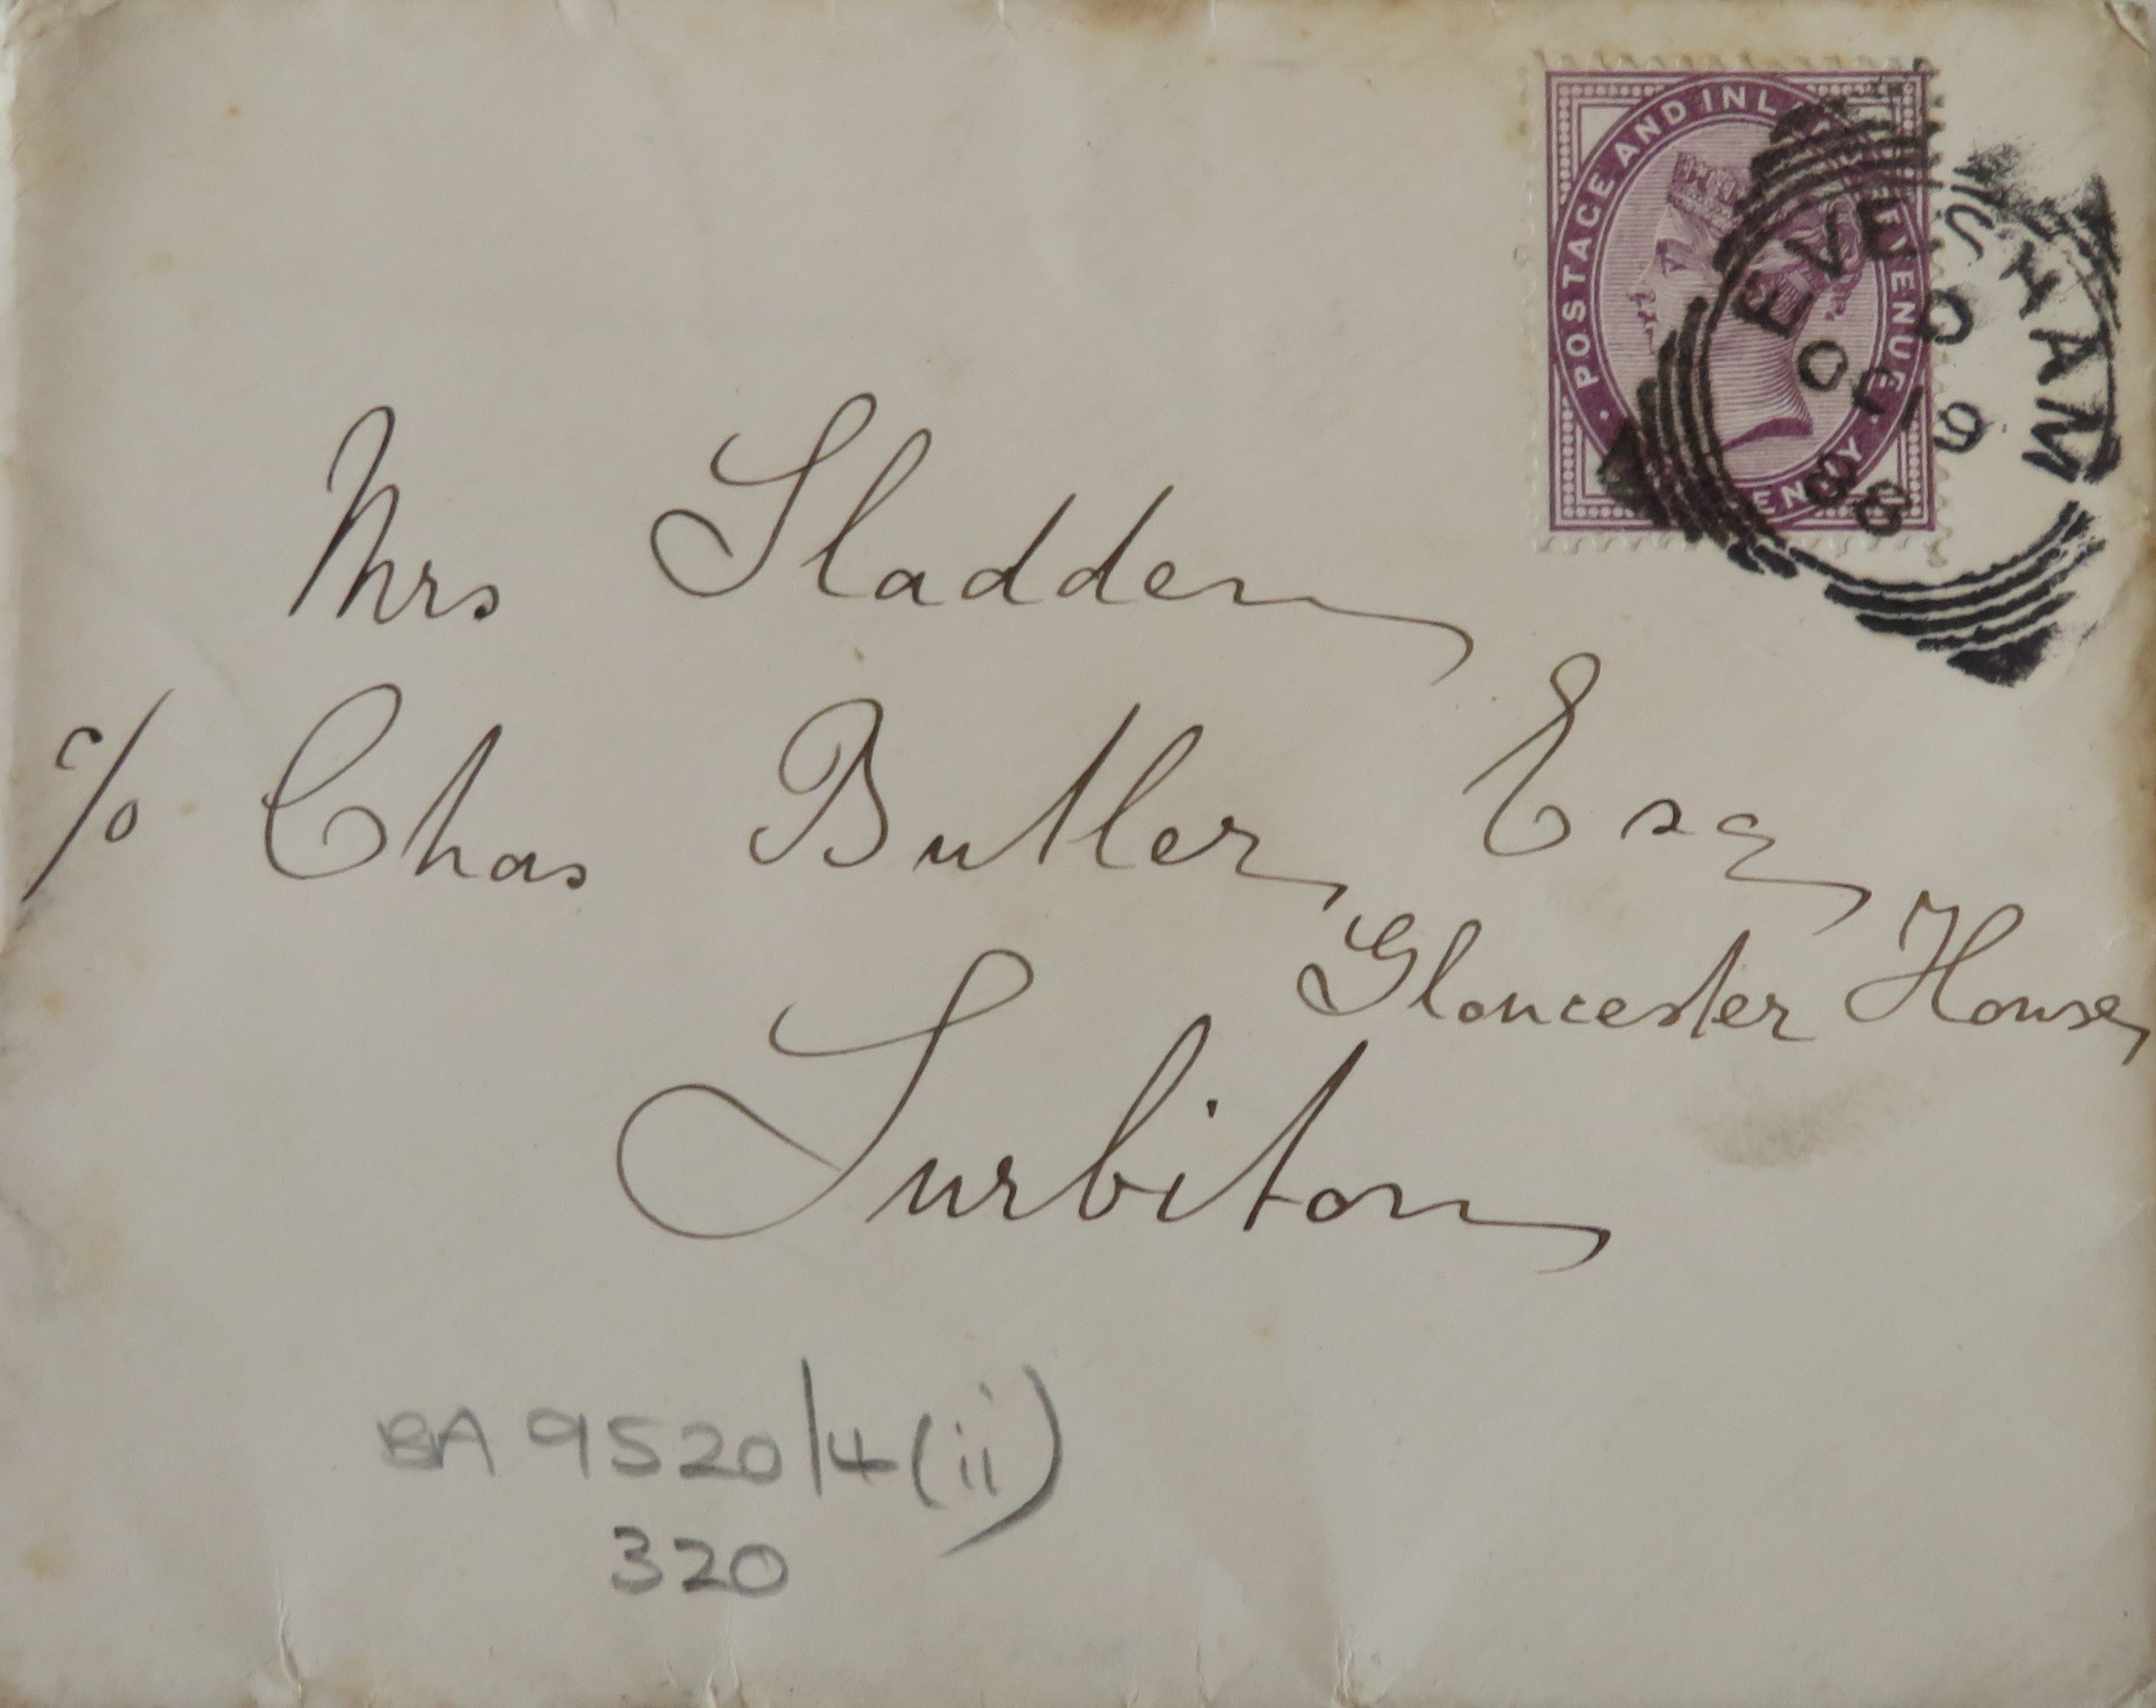 POSTAGE AND INL REVENUE
EVESHAM
OC 9
98
Mrs Sladden
c/o Chas Butler, Esq
Gloucester House,
Surbiton
BA 9520/4(ii)
320